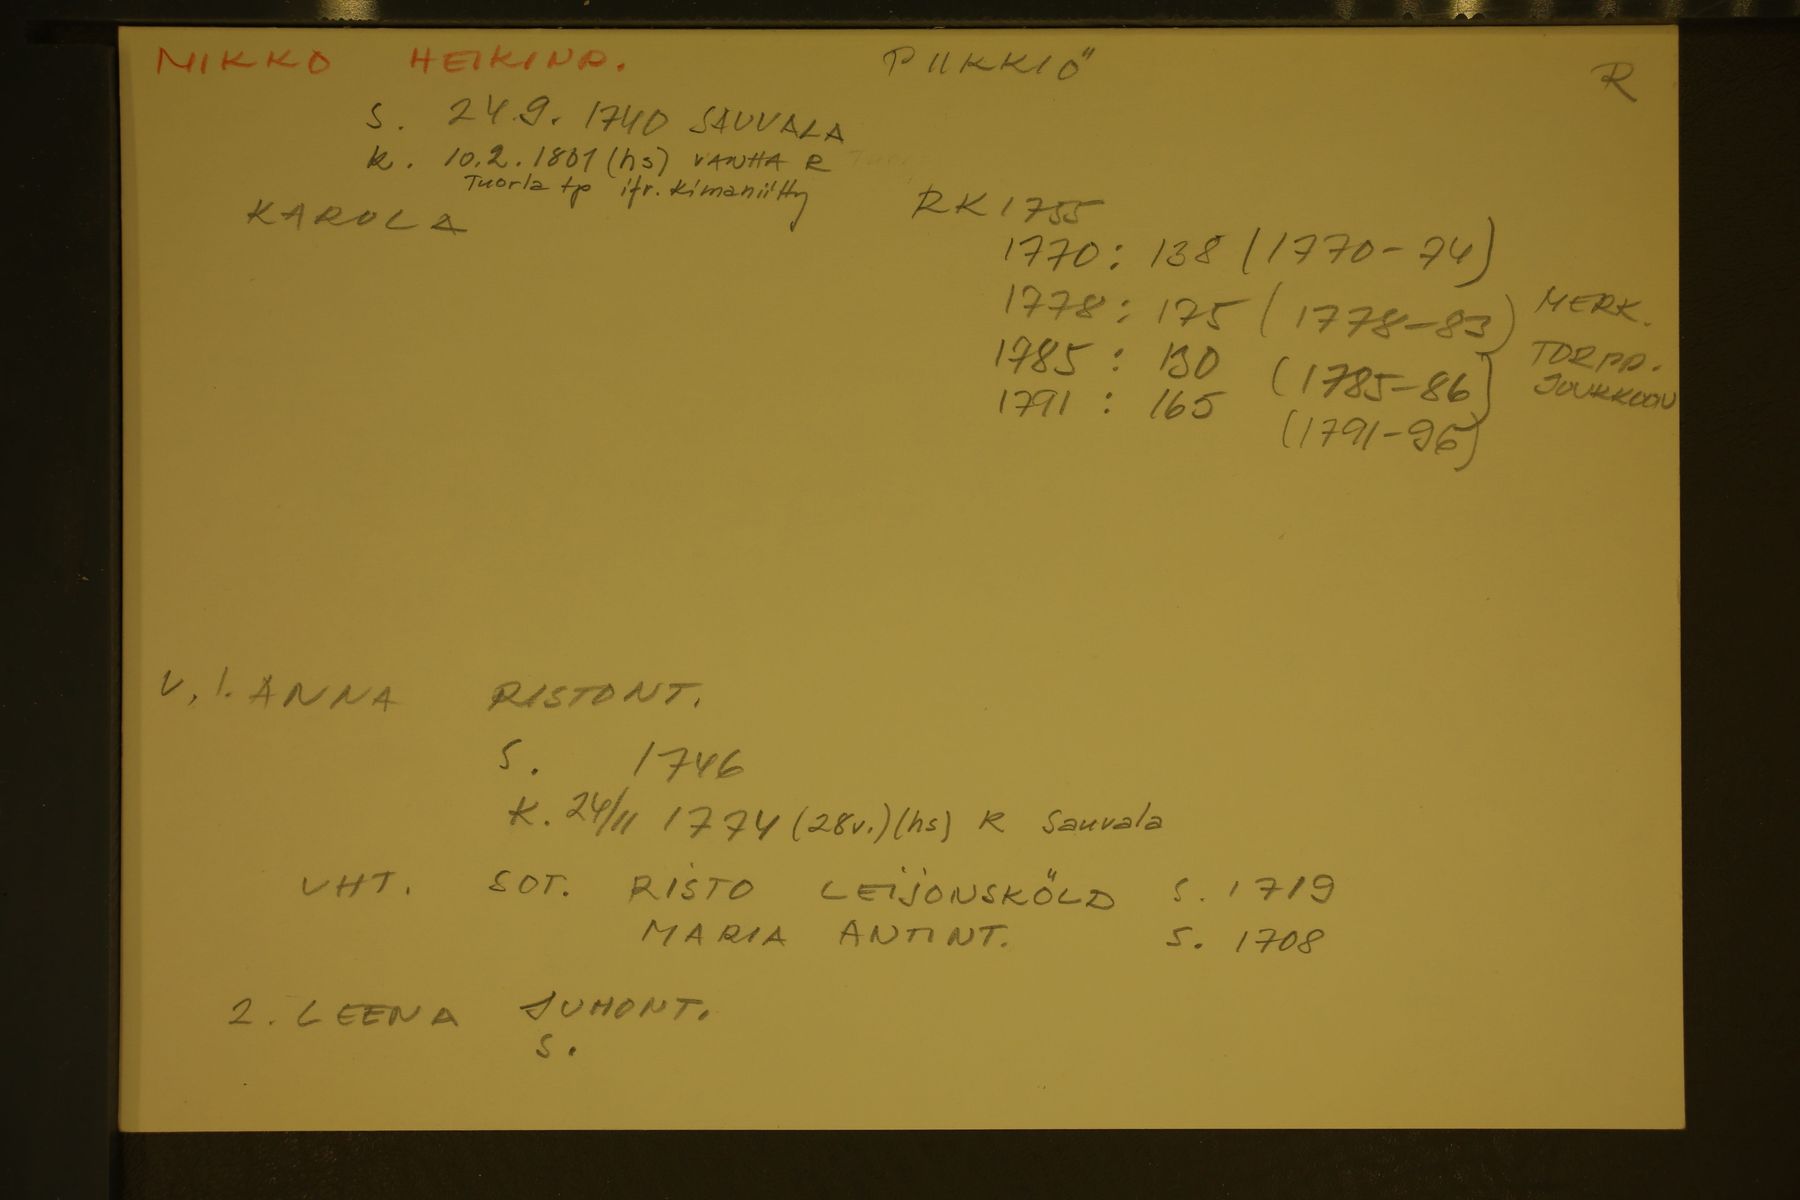 MIKKO HEIKINP. PIIKKIÖ R
S. 24.9. 1740 SAUVALA
k. 10.2. 1801 (hs) VANHA R
Tuorla tp ifr. Kimaniitty
KAROLA
RK 1755
1770 : 138 (1770-74)
1778 : 175 (1778-83) MERK.
1785 : 130 (1785-86) TORPP.
1791 : 165 (1791-96) JOUKKOON
V. 1. ANNA RISTONT.
S. 1746
K. 24/11 1774 (28v.) (hs) R Sauvala
VHT. SOT. RISTO LEIJONSKÖLD S. 1719
MARIA ANTINT. S. 1708
2. LEENA JUHONT.
S.